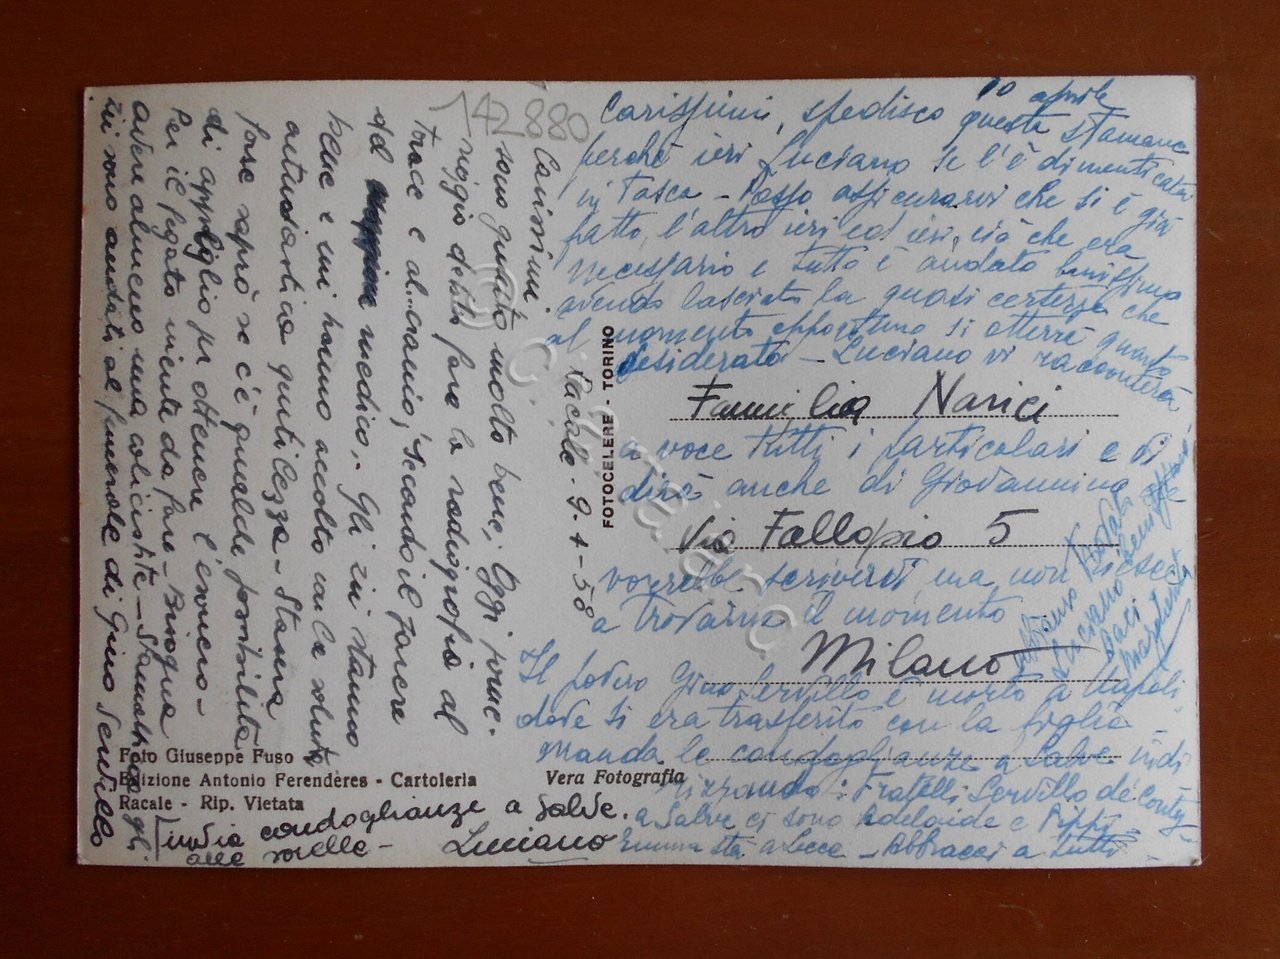 142880
Racale - 9-4-58
Carissimi,
sono guarito molto bene; Oggi pome-
riggio detto fare la radiografia al
torace e al cranio, secondo il parere
del medico. Gli zii stanno
bene e mi hanno accolto con la solita
entusiastica gentilezza - Stasera
forse saprò se c'è qualche possibilità
di appiglio per ottenere l'esonero -
Per il fegato niente da fare - Bisogna
avere almeno una colicistite - Stamattina gli
zii sono andati al funerale di Gino Servillo
Invia condoglianze a Salve.
alle sorelle - Luciano
10 aprile
Carissimi, spedisco questa stamane
perché ieri Luciano se l'è dimenticata
in tasca - Posso assicurarvi che si è già
fatto, l'altro ieri ed ieri, ciò che era
necessario e tutto è andato benissimo
avendo lasciato la quasi certezza che
al momento opportuno si otterrà quanto
desiderato - Luciano vi racconterà
Famiglia Narici
a voce tutti i particolari e vi
dirà anche di Giovannina
Via Fallopio 5
vorrebbe scriverti ma non riesce
a trovarne il momento
Milano
Il povero Gino Servillo è morto a Napoli
dove si era trasferito con la figlia
manda le condoglianze a Salve indi
rizzando: Fratelli Servillo de Conty -
a Salve ci sono Adelaide e Pippi
Emma sta a Lecce - Abbracci a tutti
Luciano
baci
FOTOCELERE - TORINO
Foto Giuseppe Fuso
Edizione Antonio Ferendères - Cartoleria
Racale - Rip. Vietata
Vera Fotografia